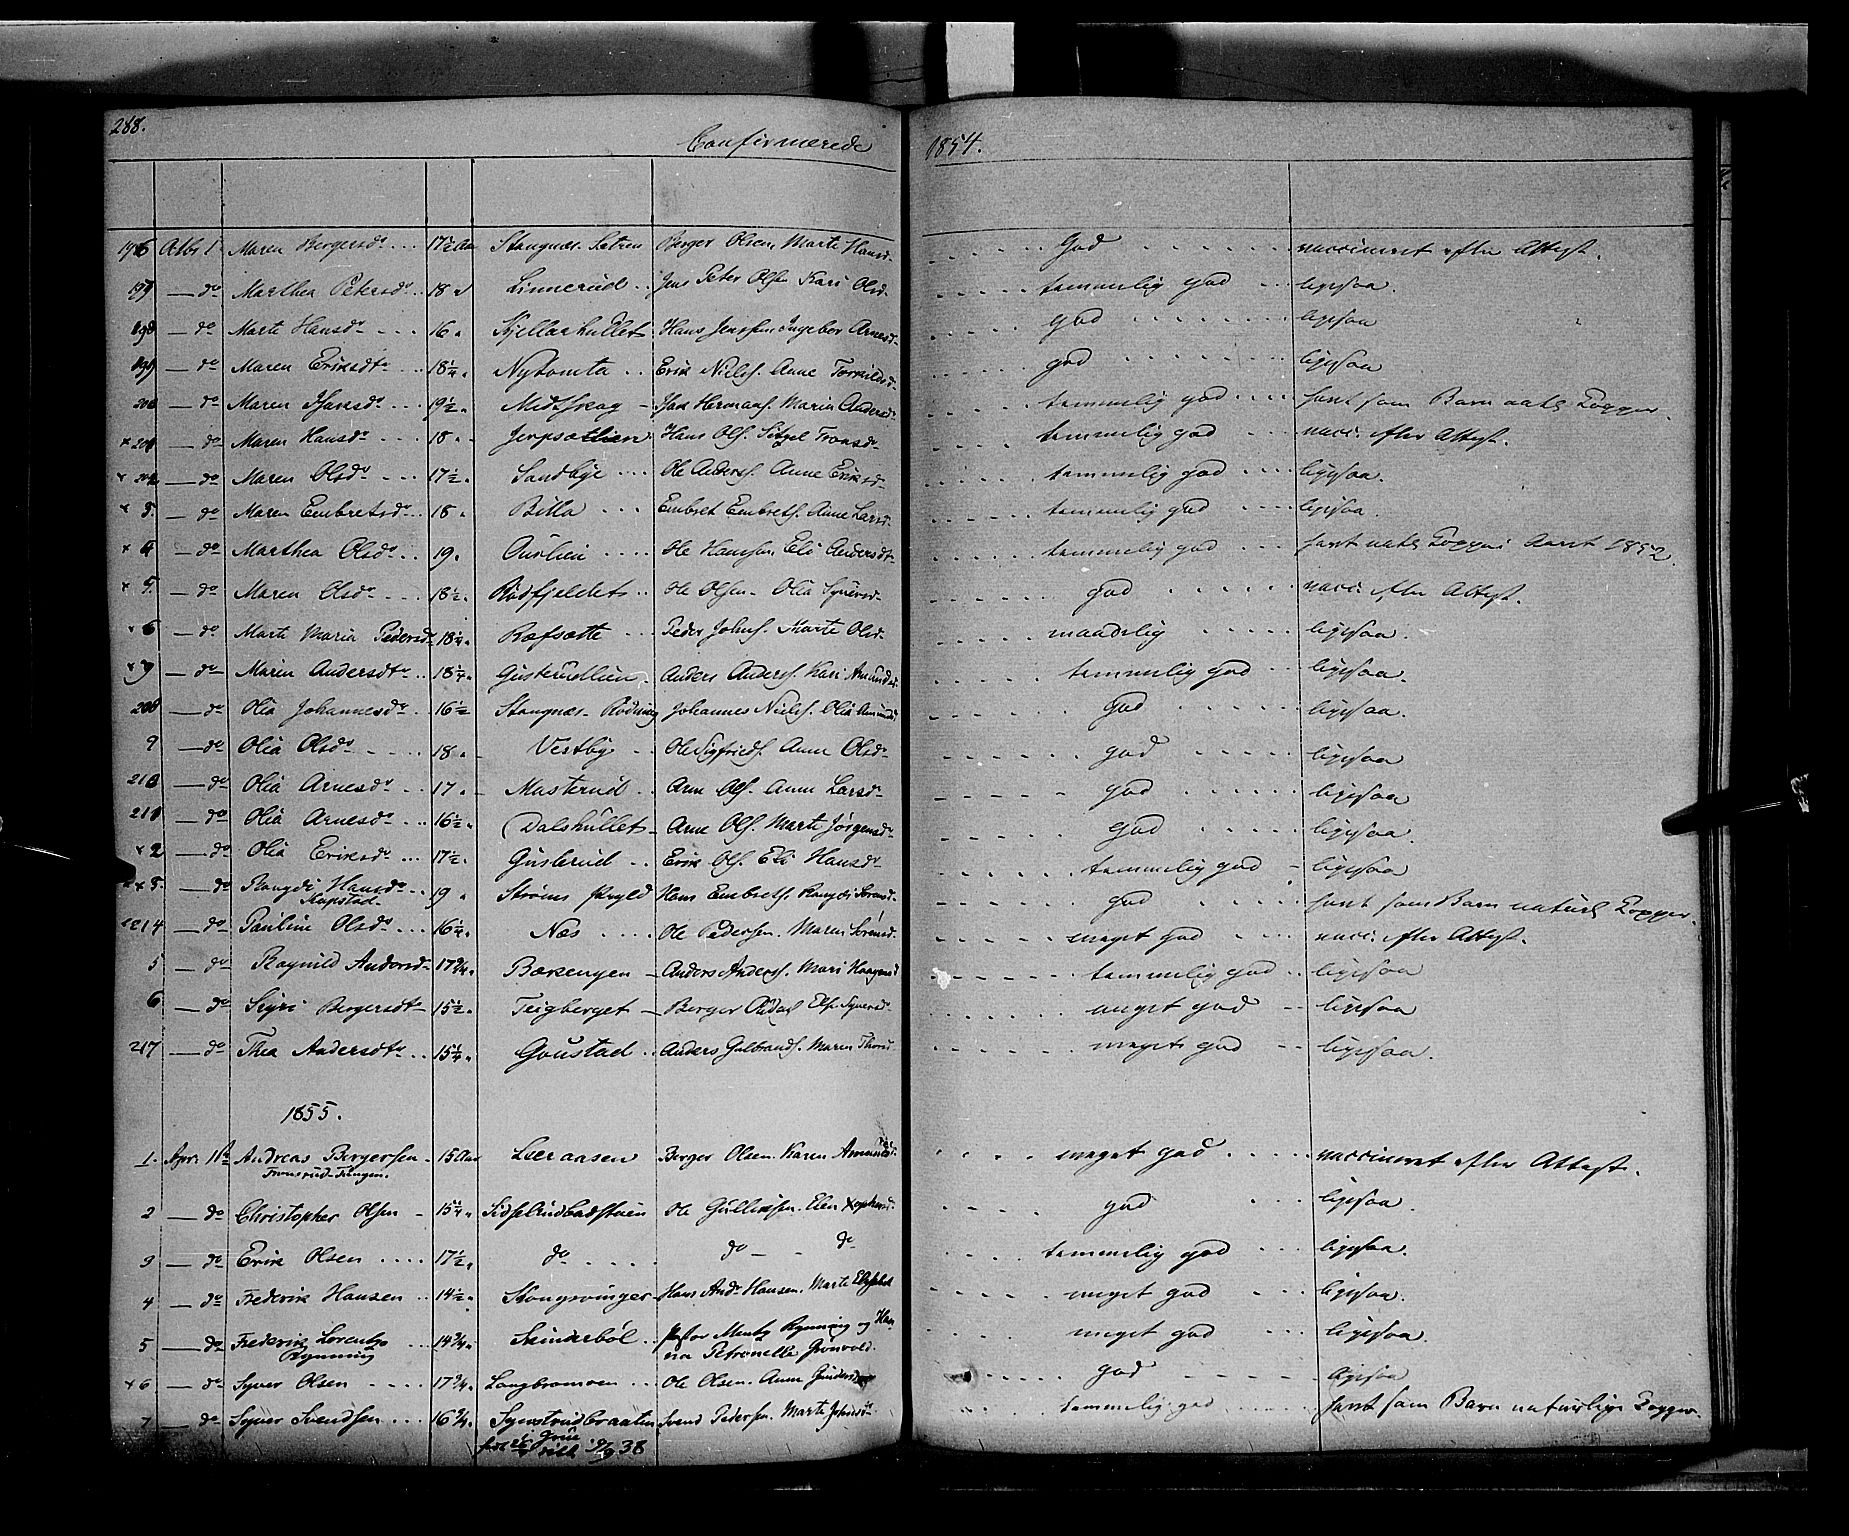 288.
Confirmerede
1854.
196 Octbr 1 Maren Bergersdr 17½ Aar Stangnæs Sætren Berger Olsen, Marte Hansd. God vaccineret efter Attest.
197 do Marthea Petersdr 18 Linnerud Jens Peter Olsen Kari Olsd. temmelig god ligesaa.
198 do Marte Hansdr 16 Kjellarhullet Hans Jensen Ingebor Arnesd. god ligesaa
199 do Maren Eriksdtr 18¼ Nytomta Erik Niels. Anne Torkildsd. god ligesaa
200 do Maren 19½ Midtskog Herman. Maria Andersd. temmelig god havt som Barn Kopper.
× 201 do Maren Hansdr 18 Jerpsætlien Hans Ols. Sitzel Tronsdr temmelig god vacc. efter Attest.
× 202 do Maren Olsdr 17½ Sandbye Ole Anders. Anne Eriksd. temmelig god ligesaa.
× 3. do Maren Embretsdr 18 Billa Embret Embrets. Anne Larsd. temmelig god ligesaa.
× 4 do Marthea Olsdr 19. Ouslien Ole Hansen Eli Andersdtr temmelig god havt natl. Kopper Aaret 1852.
× 5. do Maren Olsdr 18½ Rødfjeldet Ole Olsen Olia Syversd. god vacc. efter Attest.
× 6 do Marte Maria Pedersdr 18¼ Rafsætte Peder Johns. Marte Olsd. maadelig ligesaa.
× 7 do Maren Andersdtr 18¼ Gusterudlien Anders Anders. Kari Amundsd. temmelig god ligesaa.
208 do Olia Johannesdr 16½ Stangnæs Rødning Johannes Niels. Olia Amundsd. God ligesaa.
9 do Olia Olsdr 18 Vestby Ole Sigfrieds. Anne Olsdr god ligesaa
210 do Olia Arnesdr 17 Masterud Arne Ols. Anne Larsd. god ligesaa
211 do Olia Arnesdr 16½ Dalshullet Arne Ols. Marte Jørgensdr God ligesaa
× 2 do Olia Eriksdr 17½ Gusterud Erik Ols. Eli Hansdr temmelig god ligesaa
× 3. do Rangdi Hansdr 19 Strøms Hans Embrets. Rangdi Sørensd. god havt som Barn naturl. Kopper.
Kapstad
× 214 do Pauline Olsdr 16¼ Næs Ole Pedersen. Maren Sørensd. meget god vacc. efter Attest.
5 do Ragnild Andersdr 17¾ Bærengen Anders Anders. Mari Haagensd. temmelig god ligesaa
6 do Sigri Bergersdtr 15½ Teigberget Berger Else Syversd. meget god ligesaa
217 do Thea Andersdtr 15¼ Goustad Anders Gulbrands. Maren Thorsd. meget god ligesaa.
1855.
1. Apr. 11te Andreas Bergersen 15 Aar Leeraasen Berger Olsen. Karen Amundsd. meget god vaccineret efter Attest.
2 do Christopher Olsen 15¼ Sidselrudbadstuen Ole Gulliksen. Elen Xophersd. god ligesaa.
3 do Erik Olsen 17½ do do do temmelig god ligesaa.
4 do Frederik Hansen 14½ Kongsvinger Hans Andr Hansen. Marte meget god ligesaa.
5 do Frederik Lorentz 14¾ Skinarbøl Mentz Rynning og Han
Rynning na Petronelle Grønvold. meget god ligesaa.
× 6 do Syver Olsen 17¾ Langbromoen Ole Olsen. Anne Gundersd. god ligesaa
7 do Syver Svendsen 16¾ Syverstrudbraaten Svend Pedersen. Marte Johnsd. temmelig god havt som Barn naturlige Kopper.
38